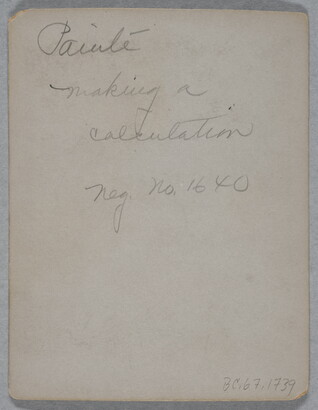 Painté
making a
calculation
neg. no. 1640
ZC.67.1739